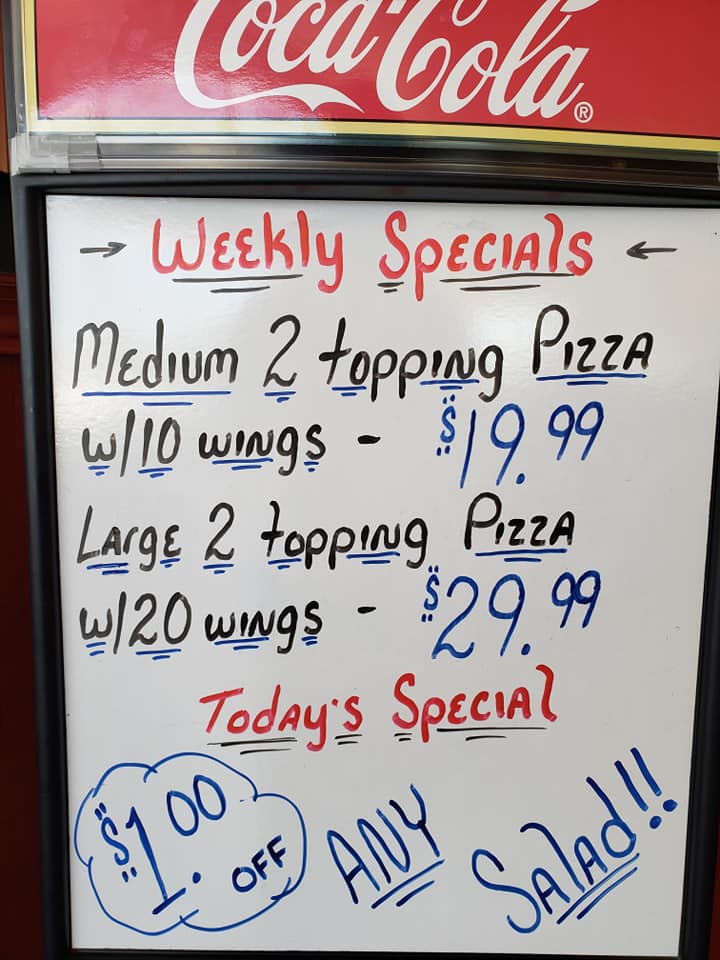 Coca-Cola®
→ Weekly Specials ←
Medium 2 topping Pizza
w/10 wings - $19.99
Large 2 topping Pizza
w/20 wings - $29.99
Today's Special
$1.00 OFF ANY Salad!!